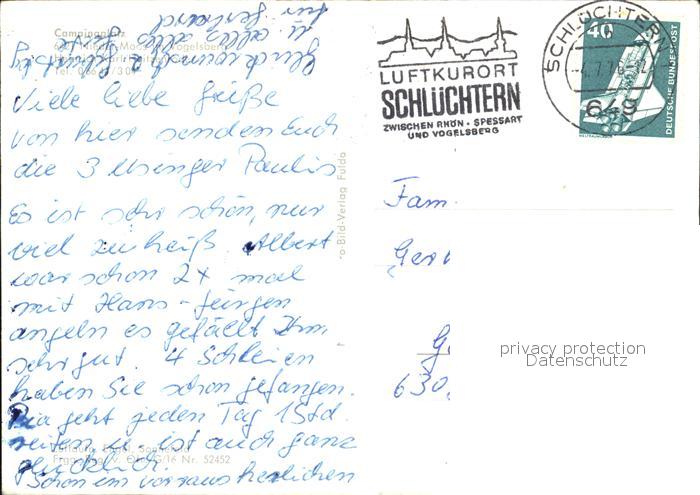 Campingplatz
Viele liebe Grüße
von hier senden Euch
die 3 Usinger Paulis
Es ist sehr schön, nur
viel zu heiß. Albert
war schon 2x mal
mit Hans-Jürgen
angeln es gefällt Ihm
sehr gut. 4 Schleien
haben Sie schon gefangen.
Pia geht jeden Tag 1 Std.
reiten u. ist auch ganz
glücklich.
Schon im voraus herzlichen
Glückwunsch
u. alles alles Gute
für Gerhard
Nr. 52452
o-Bild-Verlag Fulda
LUFTKURORT
SCHLÜCHTERN
ZWISCHEN RHÖN · SPESSART
UND VOGELSBERG
SCHLÜCHTERN
649
40
DEUTSCHE BUNDESPOST
Fam.
Ger
G
630
privacy protection
Datenschutz